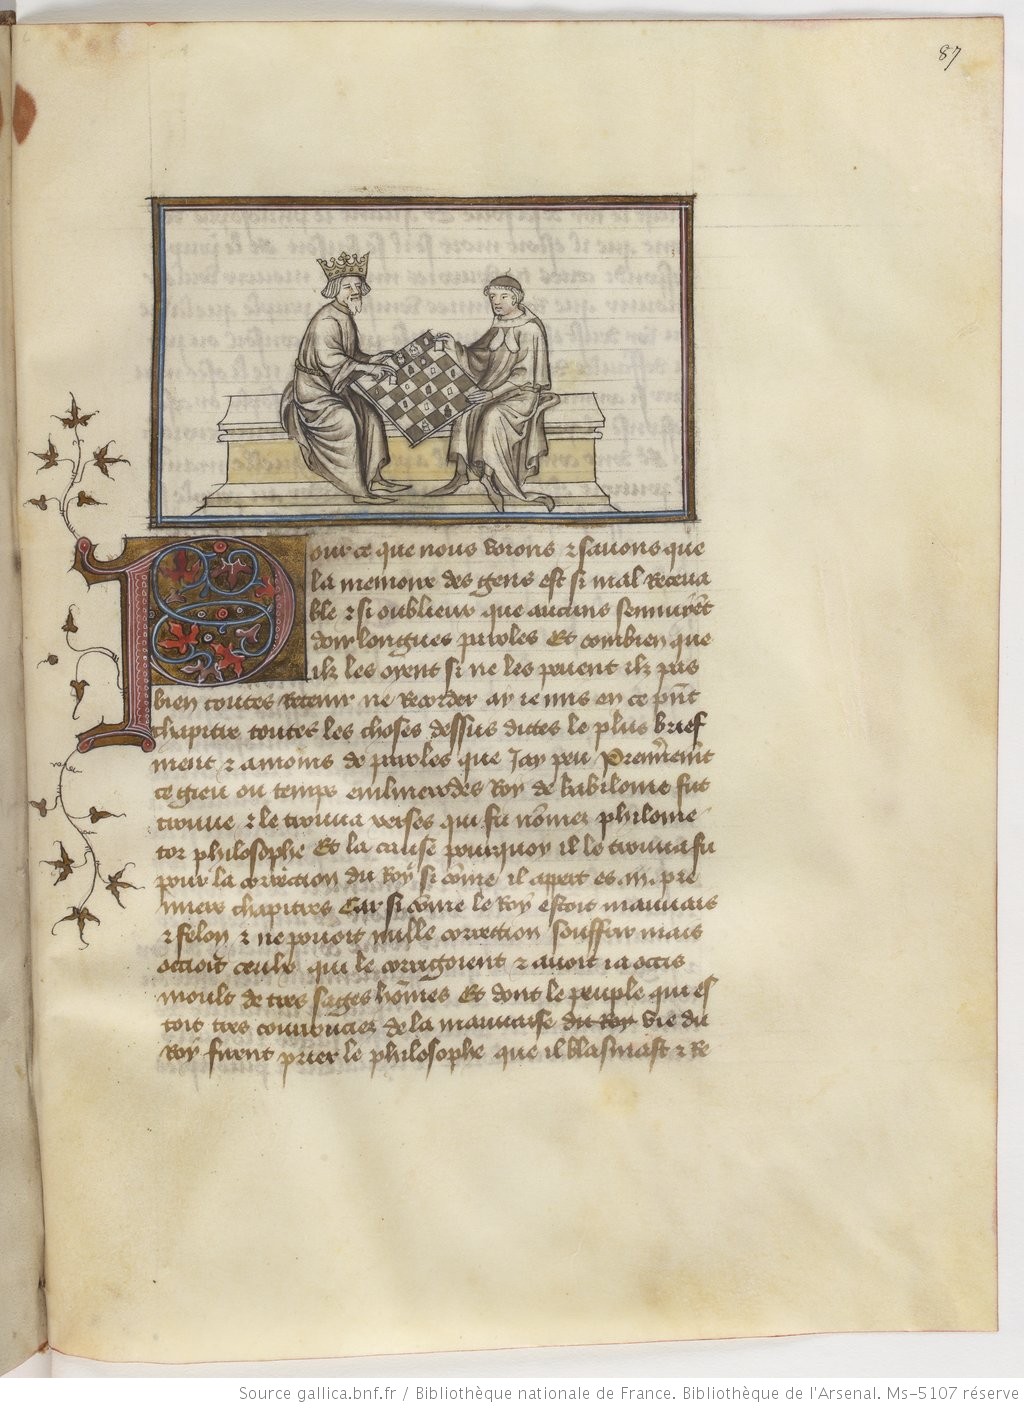 87
Pour ce que nous voions & savons que
la memoire des gens est si mal Receva
ble & si oublieux que aucuns sennuiẽt
doir longues paroles Et combien que
ilz les oyent si ne les peuent ilz pas
bien toutes Retenir ne Recorder ay ie mis en ce pñt
chapitre toutes les choses dessus dictes le plus brief
ment & a moins de paroles que Jay peu Premẽremẽt
ce gieu ou temps enilmerodes Roy de babilonie fut
trouue & le trouua xerses qui fu nõmez philome
tor philosophe Et la cause pourquoy il le trouua fu
pour la correction du Roy si cõme il appert es .iij. pre
miers chapitres Car si cõme le Roy estoit mauvais
& felon & ne povoit nulle correction souffrir mais
occioit ceulx qui le corrigoient & avoit ia occis
moult de tres sages hõmes Et dont le peuple qui es
toit tres courroucies de la mauvaise du Roy vie du
Roy furent prier le philosophe que il blasmast & Re
Source gallica.bnf.fr / Bibliothèque nationale de France. Bibliothèque de l'Arsenal. Ms-5107 réserve